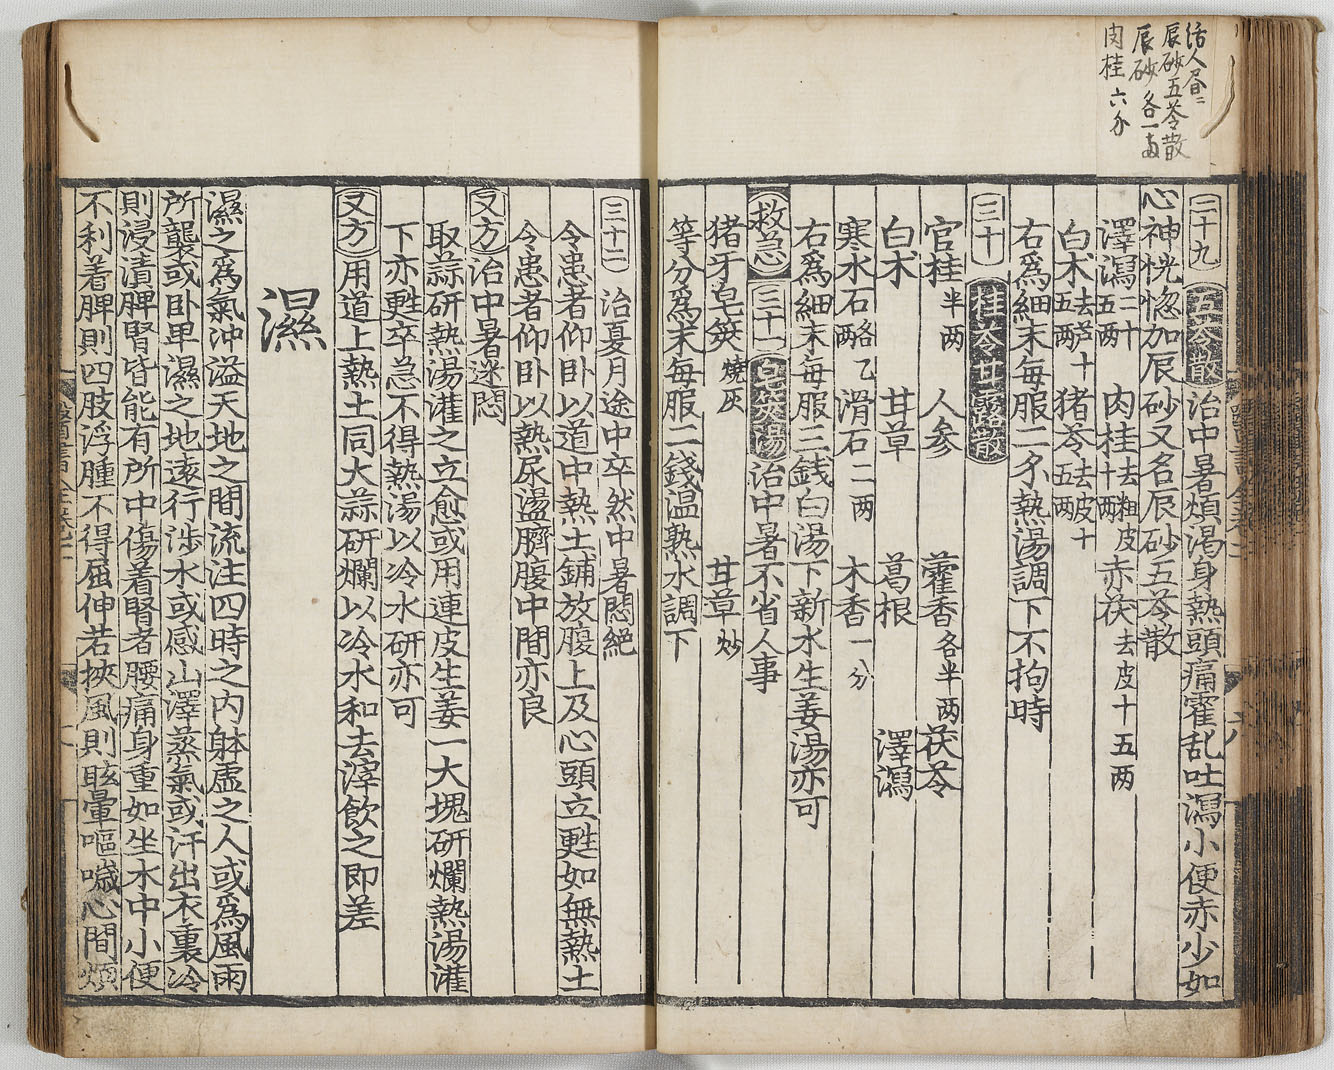 活人書二
辰砂五苓散
辰砂各一両
肉桂六分
二十九 五苓散 治中暑煩渴身熱頭痛霍乱吐瀉小便赤少如
心神恍惚加辰砂又名辰砂五苓散
澤瀉二十五两 肉桂去粗皮十两 赤茯去皮十五两
白朮去芦十五两 猪苓去皮十五两
右爲細末每服二錢熱湯調下不拘時
三十 桂苓甘露散
官桂半两 人參 藿香各半两 茯苓
白朮 甘草 葛根 澤瀉
寒水石各乙两 滑石二两 木香一分
右爲細末每服三錢白湯下新水生姜湯亦可
救急 三十一 皂筴湯 治中暑不省人事
猪牙皂筴燒灰 甘草炒
等分爲末每服二錢温熟水調下
三十二 治夏月途中卒然中暑悶絕
令患者仰卧以道中熱土鋪放腹上及心頭立甦如無熱土
令患者仰卧以熱尿盪臍腹中間亦良
又方 治中暑迷悶
取蒜研熱湯灌之立愈或用連皮生姜一大塊研爛熱湯灌
下亦甦卒急不得熱湯以冷水研亦可
又方 用道上熱土同大蒜研爛以冷水和去滓飲之即差
濕
濕之爲氣沖溢天地之間流注四時之内躰虛之人或爲風雨
所襲或卧卑濕之地遠行涉水或感山澤蒸氣或汗出衣裏冷
則浸漬脾腎皆能有所中傷着腎者腰痛身重如坐水中小便
不利着脾則四肢浮腫不得屈伸若挾風則眩暈嘔噦心間煩